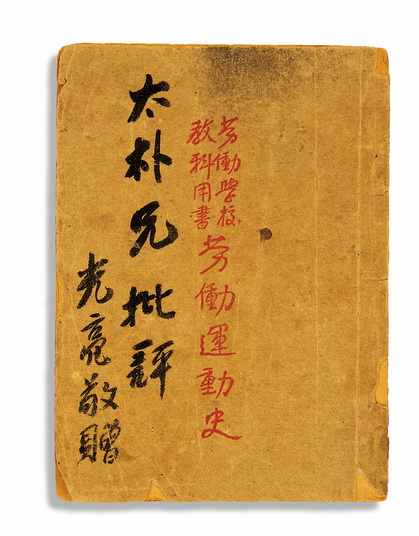 劳働學校
教科用書
劳働運動史
太朴兄批評
光亮敬贈